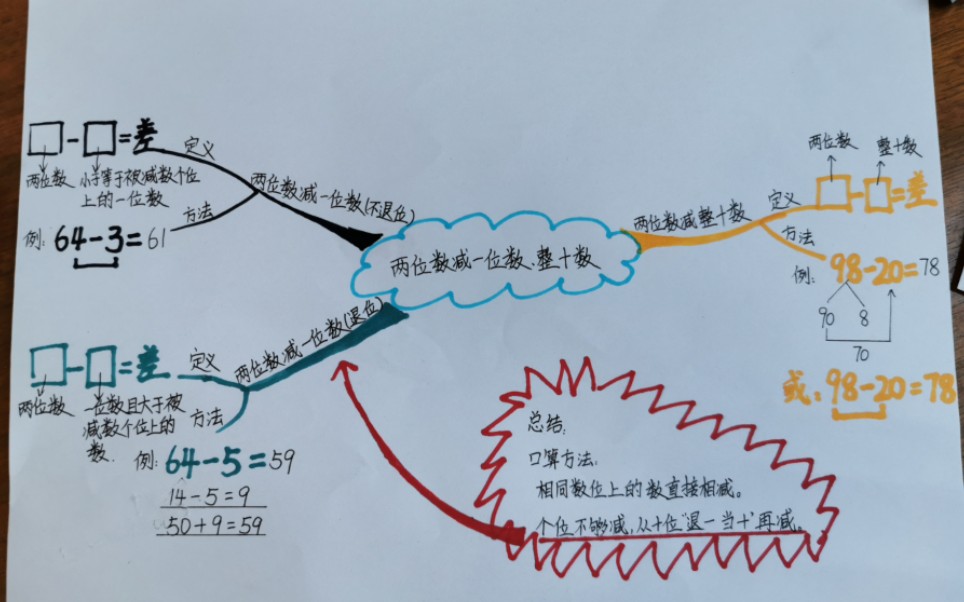 两位数减一位数、整十数
两位数减一位数(不退位)
定义
□-□=差
两位数
小于等于被减数个位
上的一位数
方法
例: 64-3=61
两位数减一位数(退位)
定义
□-□=差
两位数
一位数且大于被
减数个位上的
数.
方法
例: 64-5=59
14-5=9
50+9=59
两位数减整十数
定义
两位数
整十数
□-□=差
方法
例: 98-20=78
90 8
70
或: 98-20=78
总结:
口算方法:
相同数位上的数直接相减。
个位不够减,从十位"退一当十"再减。